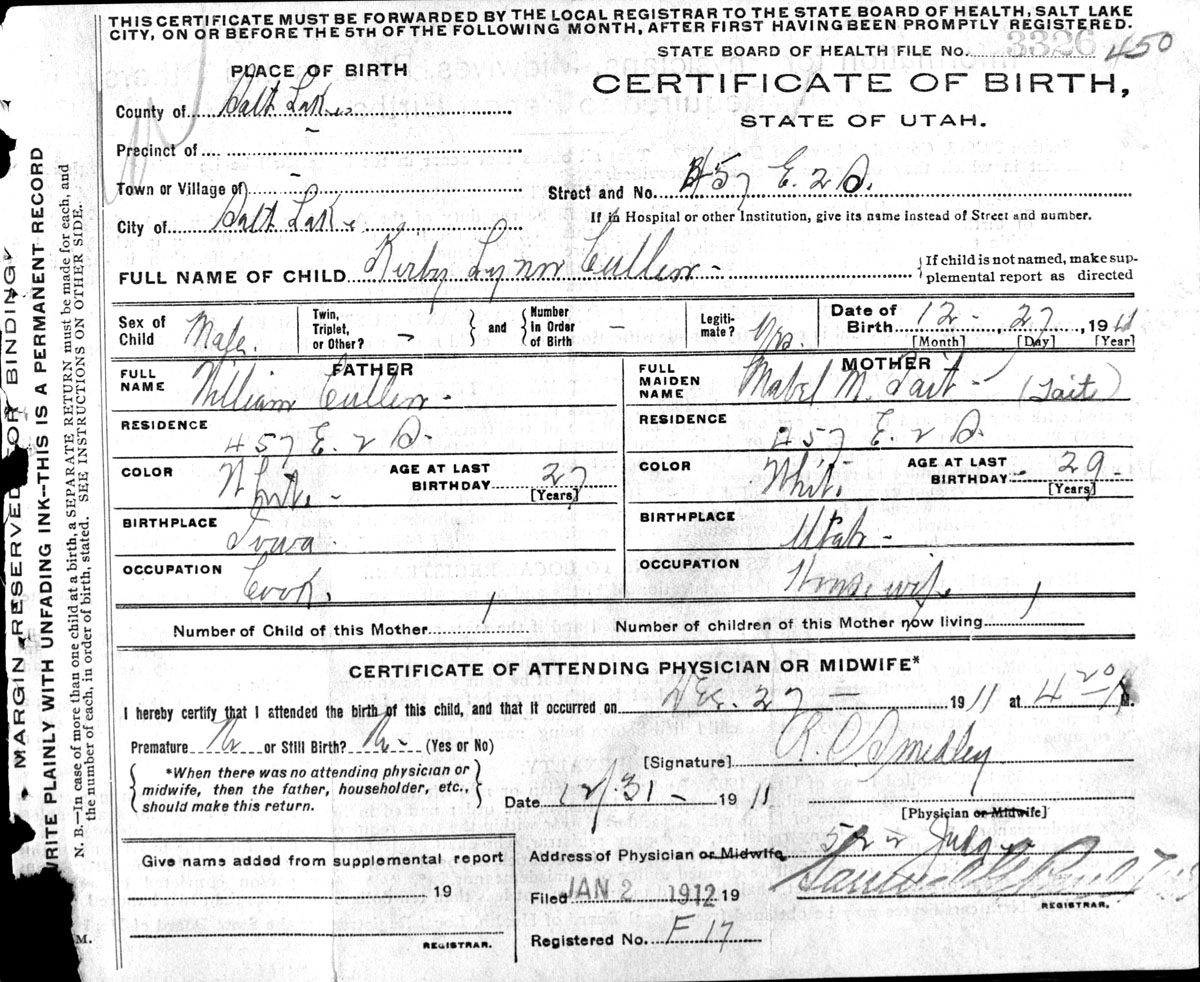 THIS CERTIFICATE MUST BE FORWARDED BY THE LOCAL REGISTRAR TO THE STATE BOARD OF HEALTH, SALT LAKE
CITY, ON OR BEFORE THE 5TH OF THE FOLLOWING MONTH, AFTER FIRST HAVING BEEN PROMPTLY REGISTERED.
STATE BOARD OF HEALTH FILE No. 3326 450
PLACE OF BIRTH
CERTIFICATE OF BIRTH,
STATE OF UTAH.
County of Salt Lake
Precinct of -
Town or Village of -
Street and No. 457 E. 2 S.
City of Salt Lake
If in Hospital or other Institution, give its name instead of Street and number.
FULL NAME OF CHILD Kirby Lynn Cullen -
If child is not named, make sup-
plemental report as directed
Sex of Child Male.
Twin, Triplet, or Other? -
and
Number in Order of Birth -
Legiti-mate? Yes
Date of Birth 12 - 27, 1911
[Month] [Day] [Year]
FATHER
FULL NAME William Cullen -
RESIDENCE 457 E. 2 S.
COLOR White -
AGE AT LAST BIRTHDAY 27
[Years]
BIRTHPLACE Iowa
OCCUPATION Cook.
MOTHER
FULL MAIDEN NAME Mabel M. Tait - (Tait)
RESIDENCE 457 E. 2 S.
COLOR White
AGE AT LAST BIRTHDAY 29
[Years]
BIRTHPLACE Utah -
OCCUPATION Housewife
Number of Child of this Mother 1
Number of children of this Mother now living 1
CERTIFICATE OF ATTENDING PHYSICIAN OR MIDWIFE*
I hereby certify that I attended the birth of this child, and that it occurred on Dec. 27 1911 at 4 20 M.
Premature No or Still Birth? No - (Yes or No)
[Signature] R. O. Smedley
*When there was no attending physician or
midwife, then the father, householder, etc.,
should make this return.
Date 12/31 - 1911
[Physician or Midwife]
Address of Physician or Midwife 522 Judge
Give name added from supplemental report
19
REGISTRAR.
Filed JAN 2 1912 19
REGISTRAR.
Registered No. F 17
MARGIN RESERVED FOR BINDING
WRITE PLAINLY WITH UNFADING INK—THIS IS A PERMANENT RECORD
N. B.—In case of more than one child at a birth, a SEPARATE RETURN must be made for each, and
the number of each, in order of birth, stated. SEE INSTRUCTIONS ON OTHER SIDE.
M.